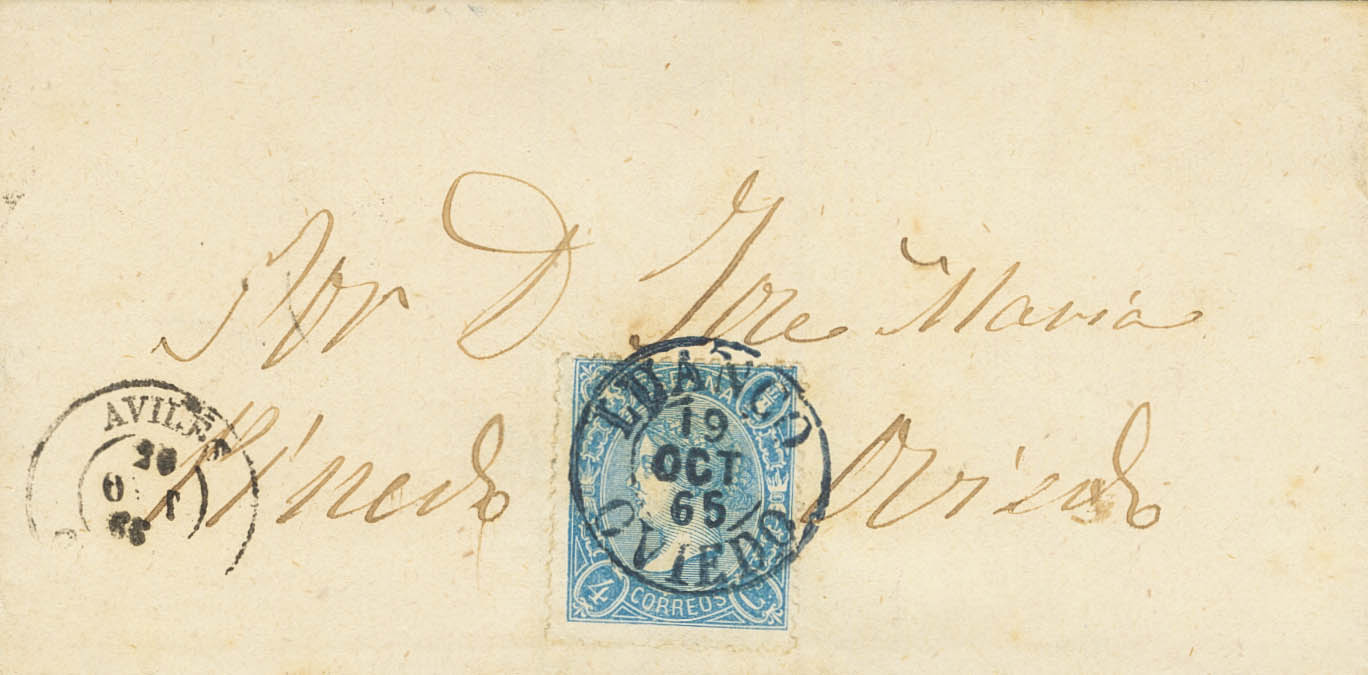 Sor D José María
Pinedo Oviedo
AVILES
20
OCT
65
LUAÑCO
19
OCT
65
OVIEDO
ESPAÑA
4 CORREOS C